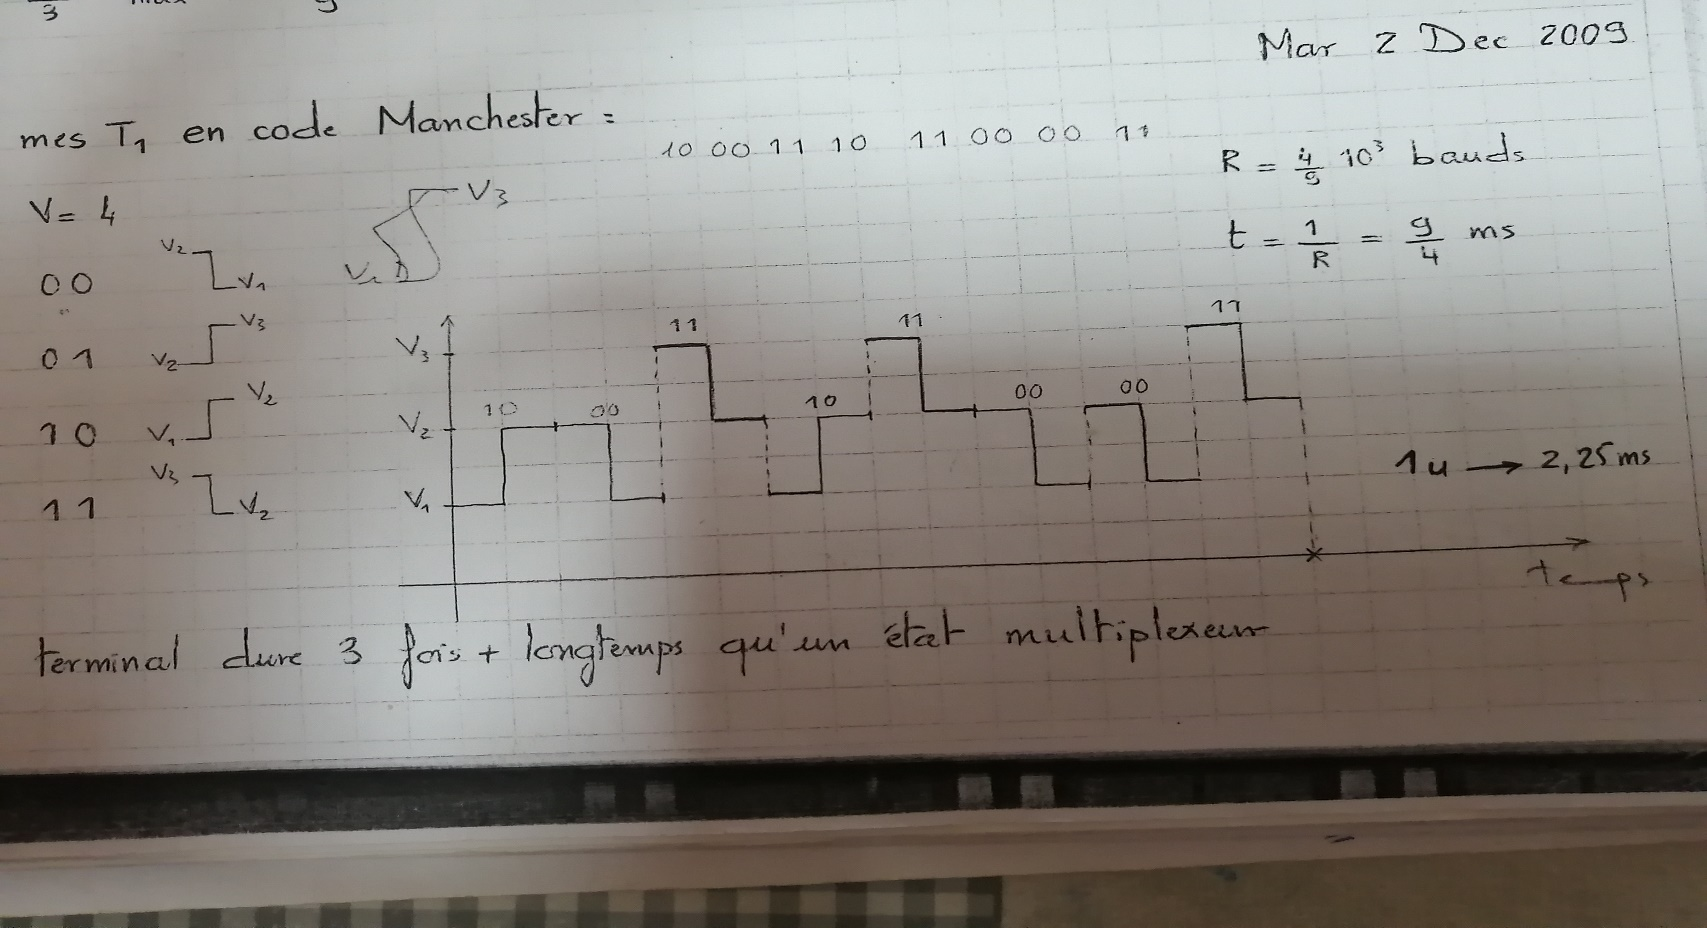 3
Mar 2 Dec 2009
mes T₁ en code Manchester :
10 00 11 10 11 00 00 11
R = 4/9 10³ bauds
V = 4
V₃
t = 1/R = 9/4 ms
00 V₂ V₁
01 V₂ V₃
10 V₁ V₂
11 V₃ V₂
V₃
V₂
V₁
10 00 11 10 11 00 00 11
1u → 2,25 ms
temps
terminal dure 3 fois + longtemps qu'un état multiplexeur